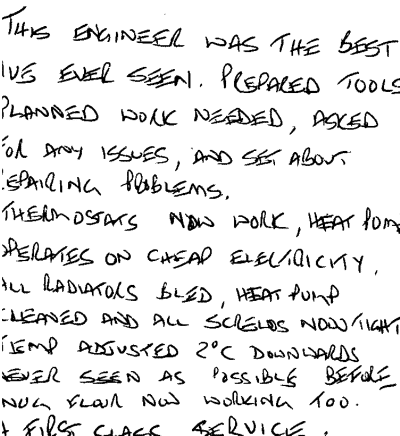 THIS ENGINEER WAS THE BEST
IVE EVER SEEN. PREPARED TOOLS
PLANNED WORK NEEDED, ASKED
FOR ANY ISSUES, AND SET ABOUT
REPAIRING PROBLEMS.
THERMOSTATS NOW WORK, HEAT PUMP
OPERATES ON CHEAP ELECTRICITY.
ALL RADIATORS BLED, HEAT PUMP
CLEANED AND ALL SCREWS NOW TIGHT
TEMP ADJUSTED 2°C DOWNWARDS
NEVER SEEN AS POSSIBLE BEFORE
FLOUR NOW WORKING TOO.
A FIRST CLASS SERVICE.